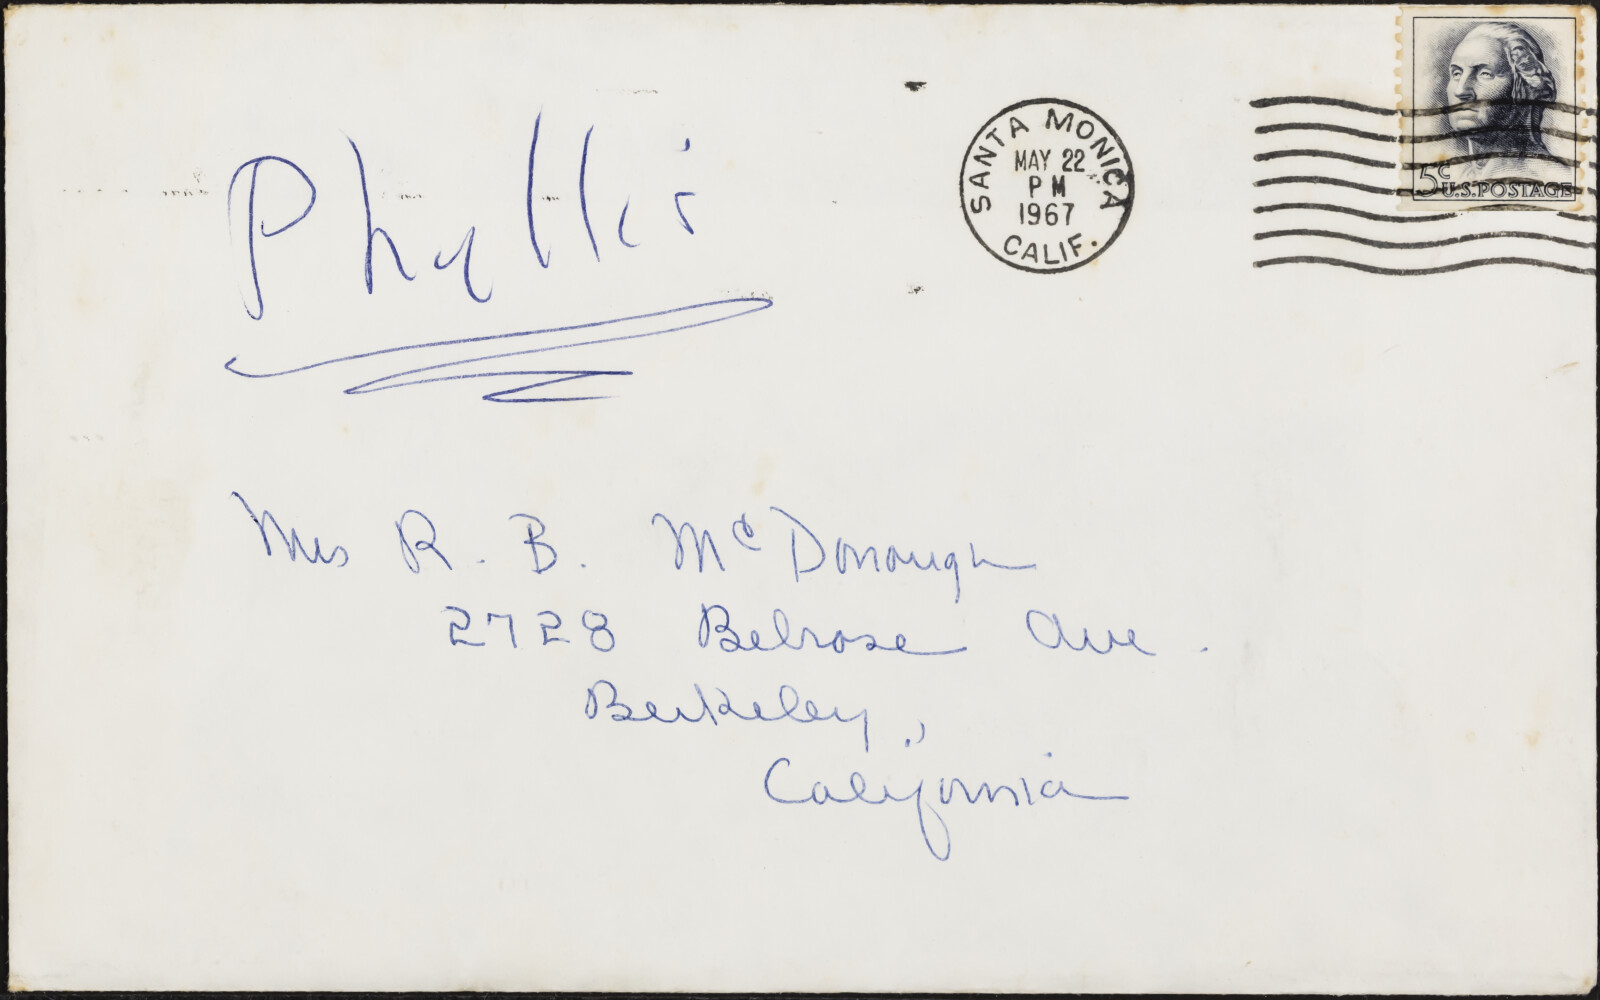 Phyllis
SANTA MONICA
MAY 22
PM
1967
CALIF.
5c
U.S. POSTAGE
Mrs R. B. McDonough
2728 Belrose Ave.
Berkeley,
California